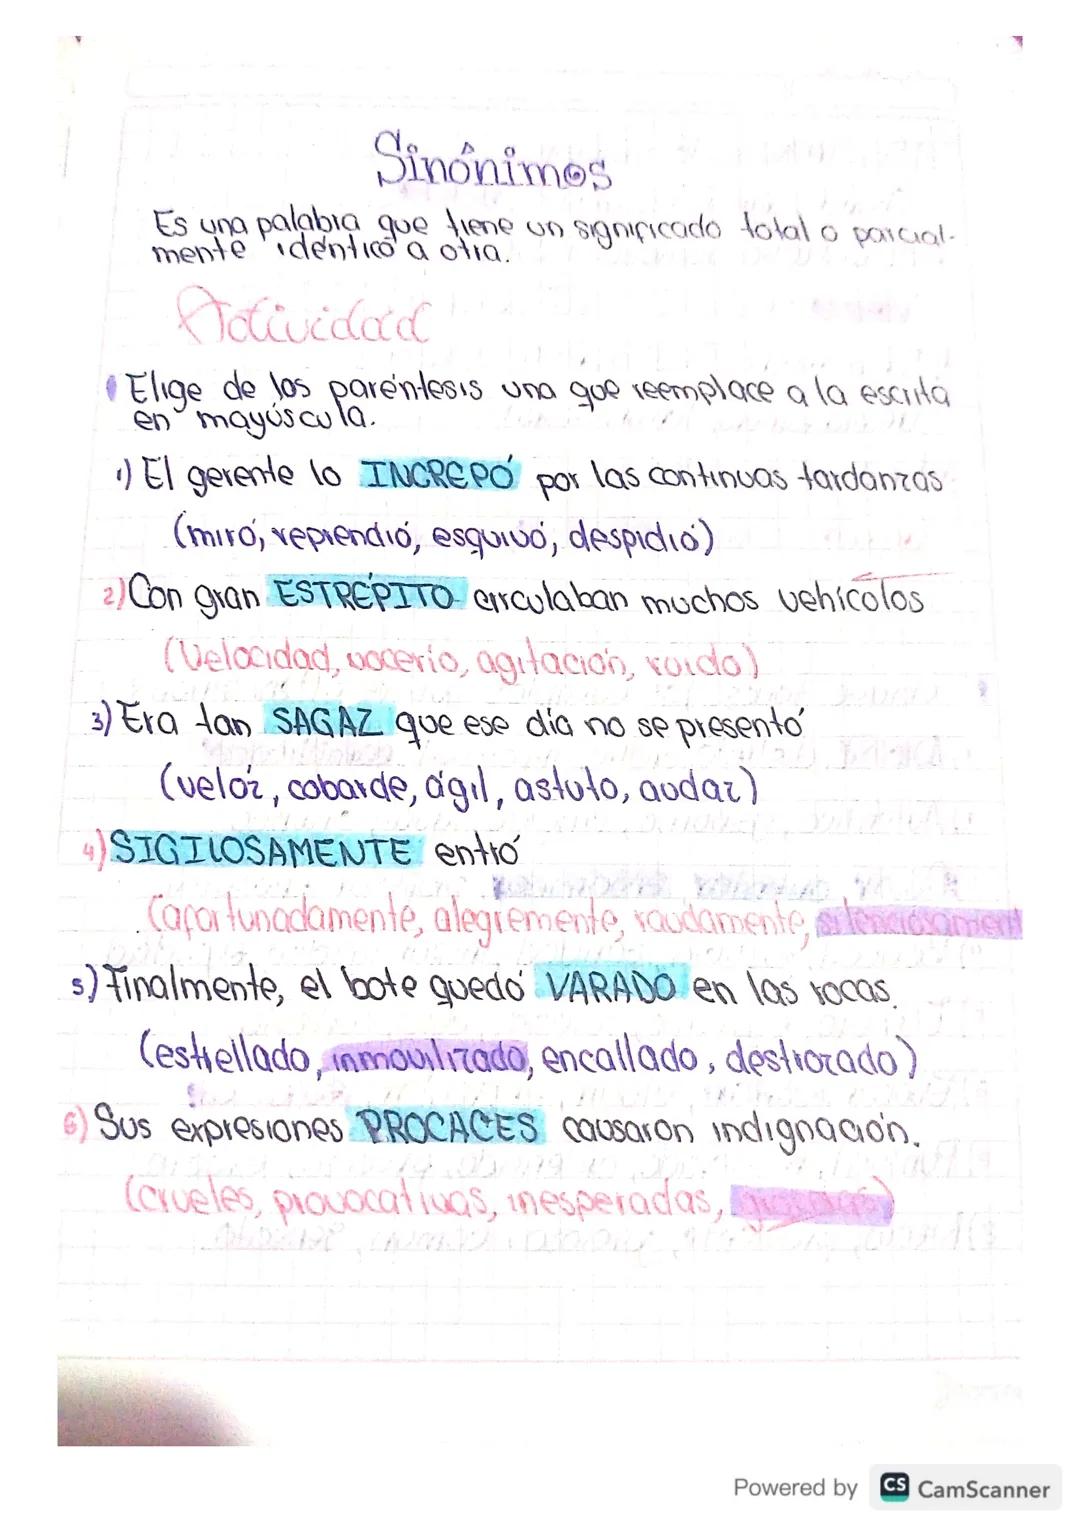 Sinónimos
Es una palabra que tiene un significado total o parcial-
mente idéntico a otra.
Actividad
Elige de los paréntesis una que reemplace a la escrita
en mayúscula.
1) El gerente lo INCREPÓ por las continuas tardanzas
(miró, reprendió, esquivó, despidió)
2) Con gran ESTRÉPITO circulaban muchos vehícolos
(Velocidad, vocerío, agitación, ruido)
3) Era tan SAGAZ que ese día no se presentó
(velóz, cobarde, ágil, astuto, audaz)
4) SIGILOSAMENTE entró
(afortunadamente, alegremente, raudamente, silenciosament
5) Finalmente, el bote quedó VARADO en las rocas.
(estrellado, inmovilizado, encallado, destrozado)
6) Sus expresiones PROCACES causaron indignación.
(crueles, provocativas, inesperadas,
Powered by CS CamScanner